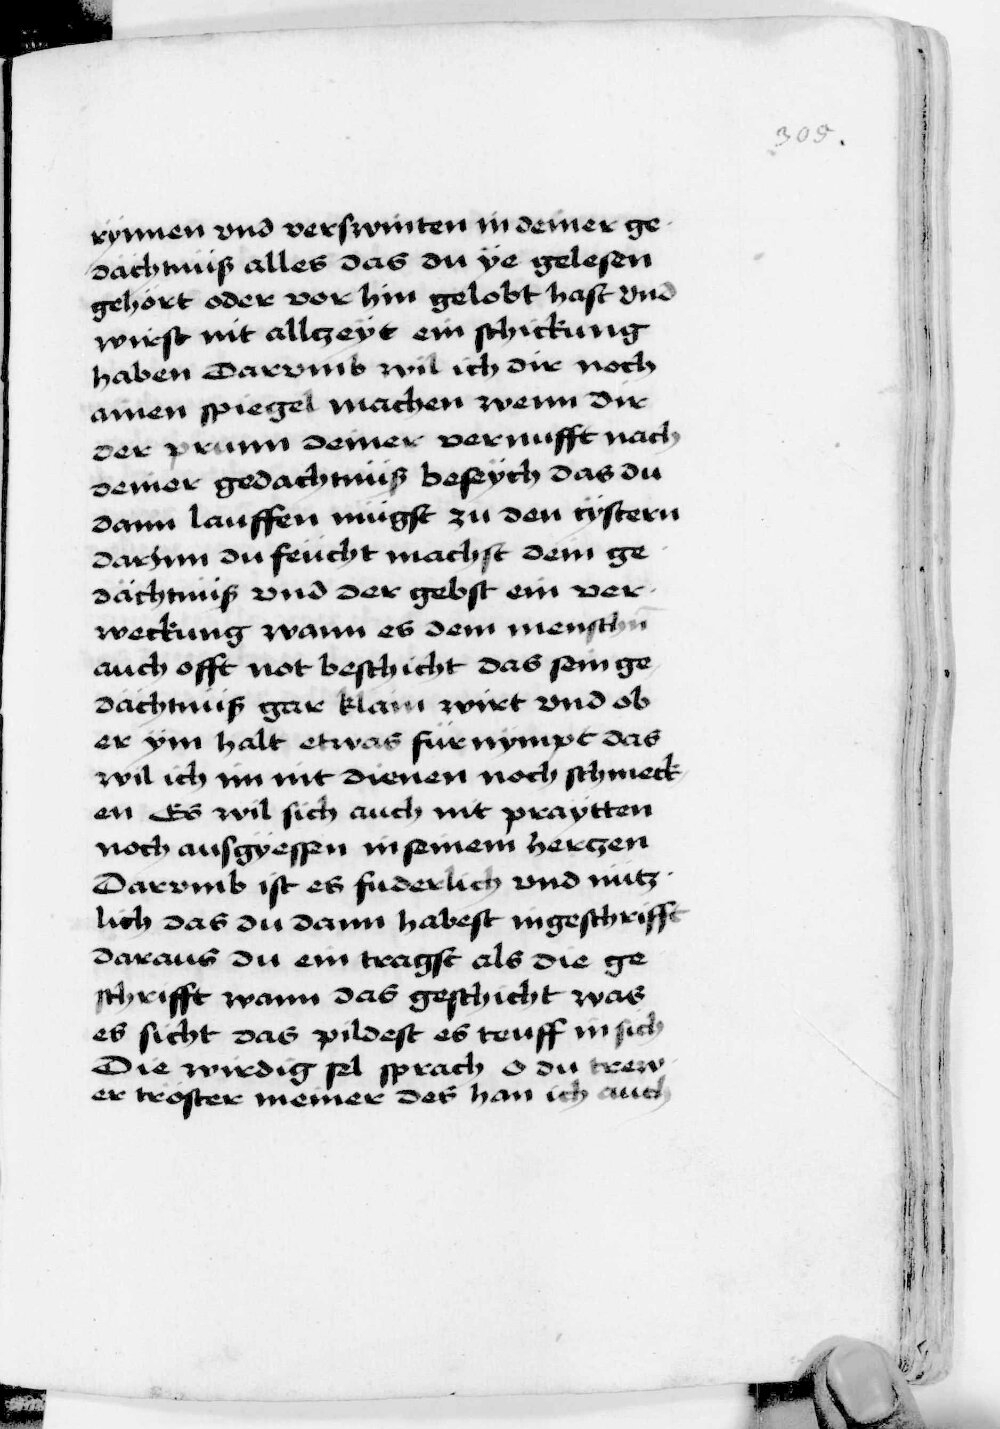 309.
rÿnnen vnd verswinten in deiner ge-
dächtnüß alles das du ÿe gelesen
gehört oder vor hin gelobt hast vnd
wirst nit allczeÿt ein schickung
haben Darvmb wil ich dir noch
ainen spiegel machen wenn dir
der prunn deiner vernufft nach
deiner gedachtnüß beseÿch das du
dann lauffen mügst zu den cÿstern
darjnn du feücht machst dein ge-
dächtnüß vnd der gebst ein ver-
weckung wann es dem menschn̄
auch offt not beschicht das sein ge-
dächtnüß gar klain wirt vnd ob
er ÿm halt etwas für nÿmpt das
wil ich im nit dienen noch schmeck-
en Es wil sich auch nit praÿtten
noch ausgÿessen in seinem herczen
Darvmb ist es fuderlich vnd nütz-
lich das du dann habest ingeschrifft
daraus du ein tragst als die ge-
schrifft wann das geschicht was
es sicht das pildest es teuff in sich
Die wirdig sel sprach o du trew-
er tröster meiner des han ich auch